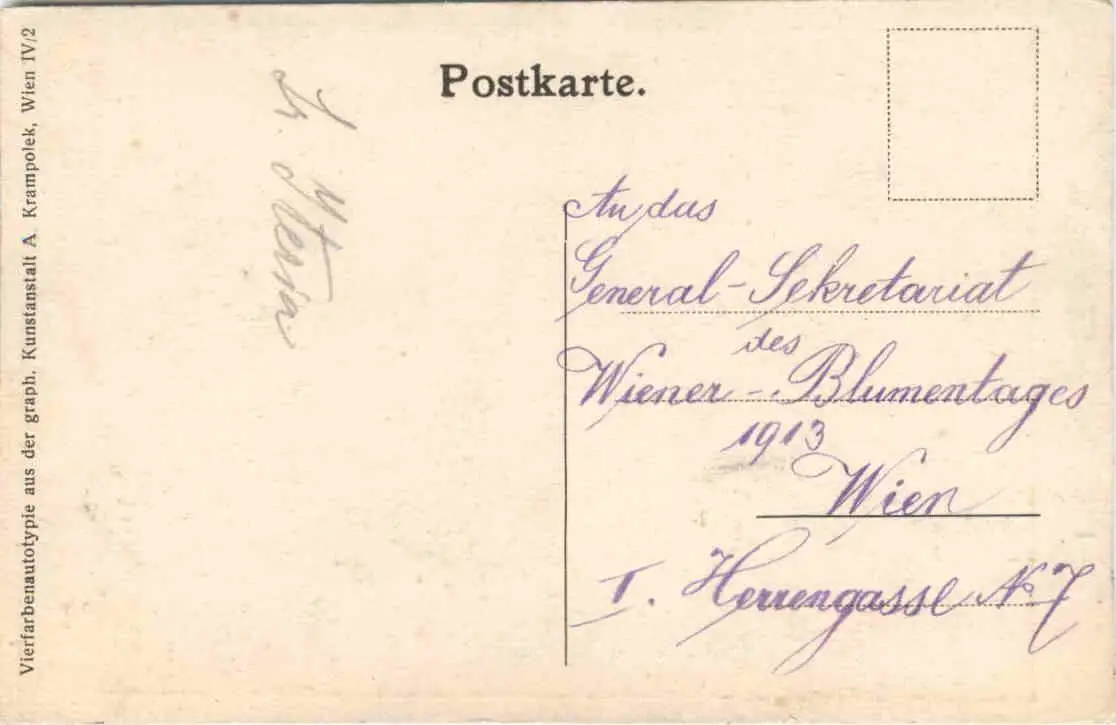 Postkarte.
An das
General-Sekretariat
des
Wiener-Blumentages
1913
Wien
I. Herrengasse No 7
Vierfarbenautotypie aus der graph. Kunstanstalt A. Krampolek, Wien IV/2